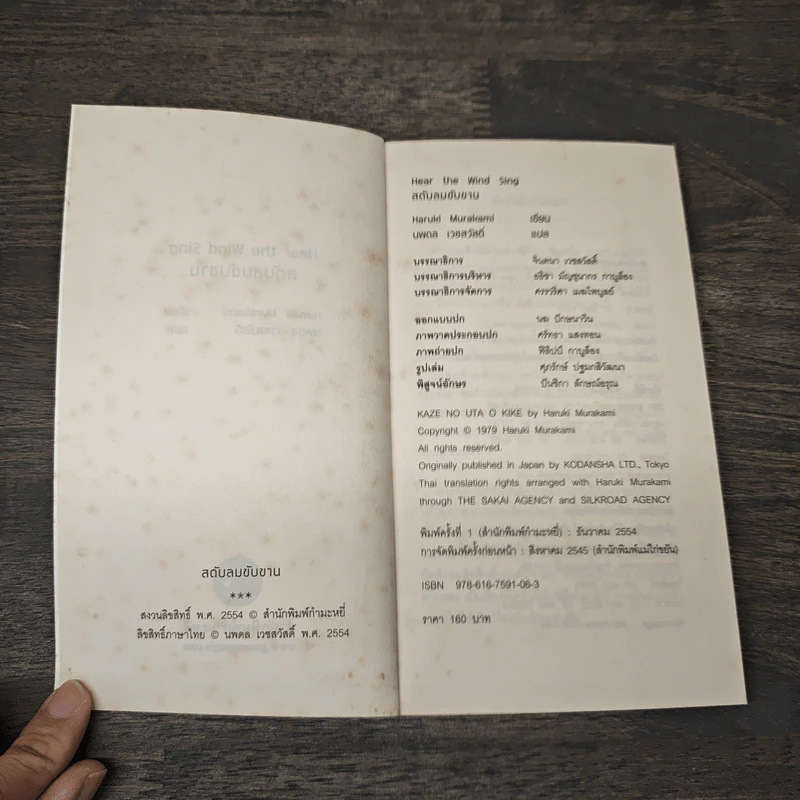 สดับลมขับขาน
***
สงวนลิขสิทธิ์ พ.ศ. 2554 © สำนักพิมพ์กำมะหยี่
ลิขสิทธิ์ภาษาไทย © นพดล เวชสวัสดิ์ พ.ศ. 2554
Hear the Wind Sing
สดับลมขับขาน
Haruki Murakami เขียน
นพดล เวชสวัสดิ์ แปล
บรรณาธิการ จินตนา เวชสวัสดิ์
บรรณาธิการบริหาร อริชา กาญลือง
บรรณาธิการจัดการ
ออกแบบปก นพ ปักษนาวิน
ภาพวาดประกอบปก ศรัทธา แสงทอน
ภาพถ่ายปก
รูปเล่ม ศุภรักษ์
พิสูจน์อักษร ลักษณ์อรุณ
KAZE NO UTA O KIKE by Haruki Murakami
Copyright © 1979 Haruki Murakami
All rights reserved.
Originally published in Japan by KODANSHA LTD., Tokyo
Thai translation rights arranged with Haruki Murakami
through THE SAKAI AGENCY and SILKROAD AGENCY
พิมพ์ครั้งที่ 1 (สำนักพิมพ์กำมะหยี่) : ธันวาคม 2554
การจัดพิมพ์ครั้งก่อนหน้า : สิงหาคม 2545 (สำนักพิมพ์แม่ไก่ขยัน)
ISBN 978-616-7591-06-3
ราคา 160 บาท